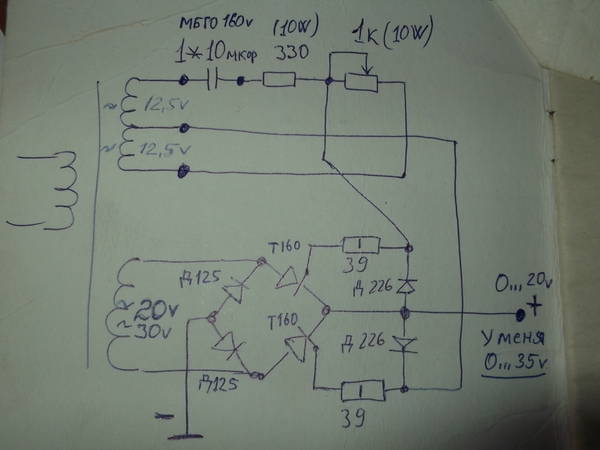 МБГО 160v
1*10мкф
(10W)
330
1К (10W)
~ 12,5v
~ 12,5v
~ 20v
~ 30v
Д125
Т160
39
Д 226
Т160
Д 226
Д125
39
0...20v
+
У меня
0...35v
-